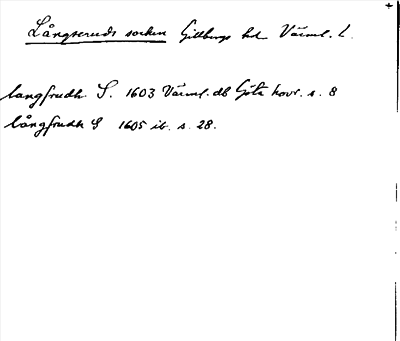 Långseruds socken Gillbergs hd Värml. L.
langhrudh S. 1603 Värml. db Göta hovr. s. 8
långhrudh S 1605 ib. s. 28.